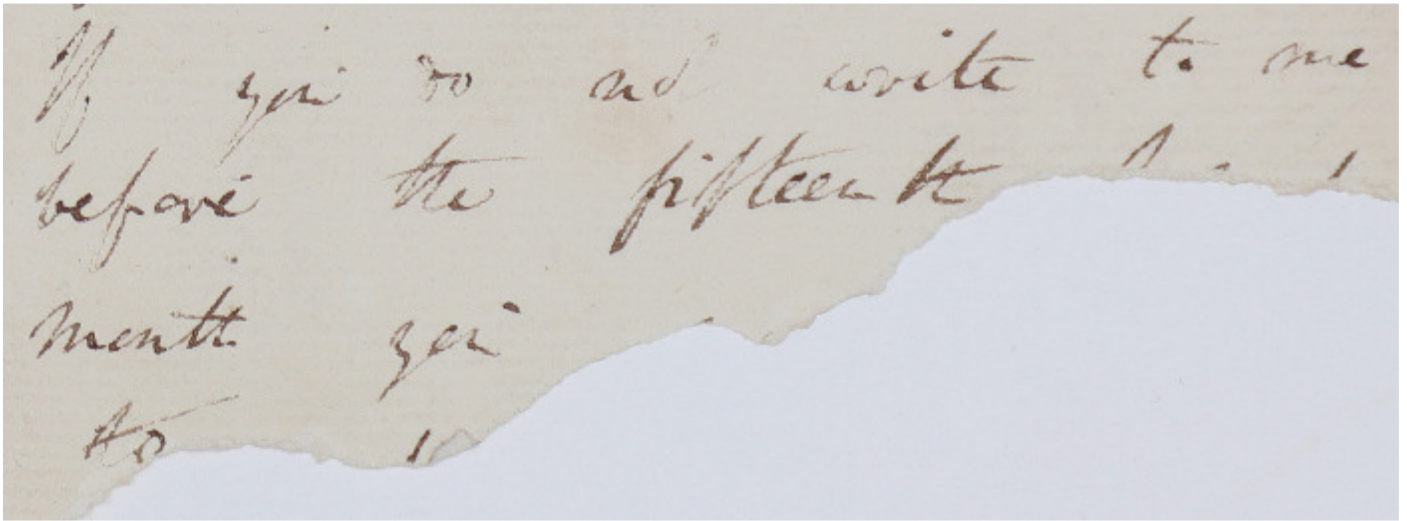 If you do not write to me
before the fifteenth
month you
to